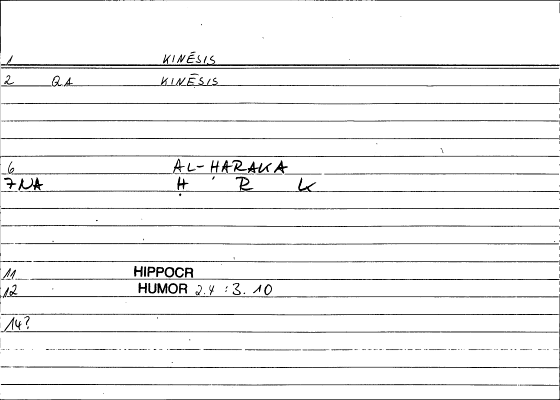 1 KINĒSIS
2 QA KINĒSIS
6 AL-ḤARAKA
7 NA Ḥ R K
11 HIPPOCR
12 HUMOR 2.4 : 3.10
14?